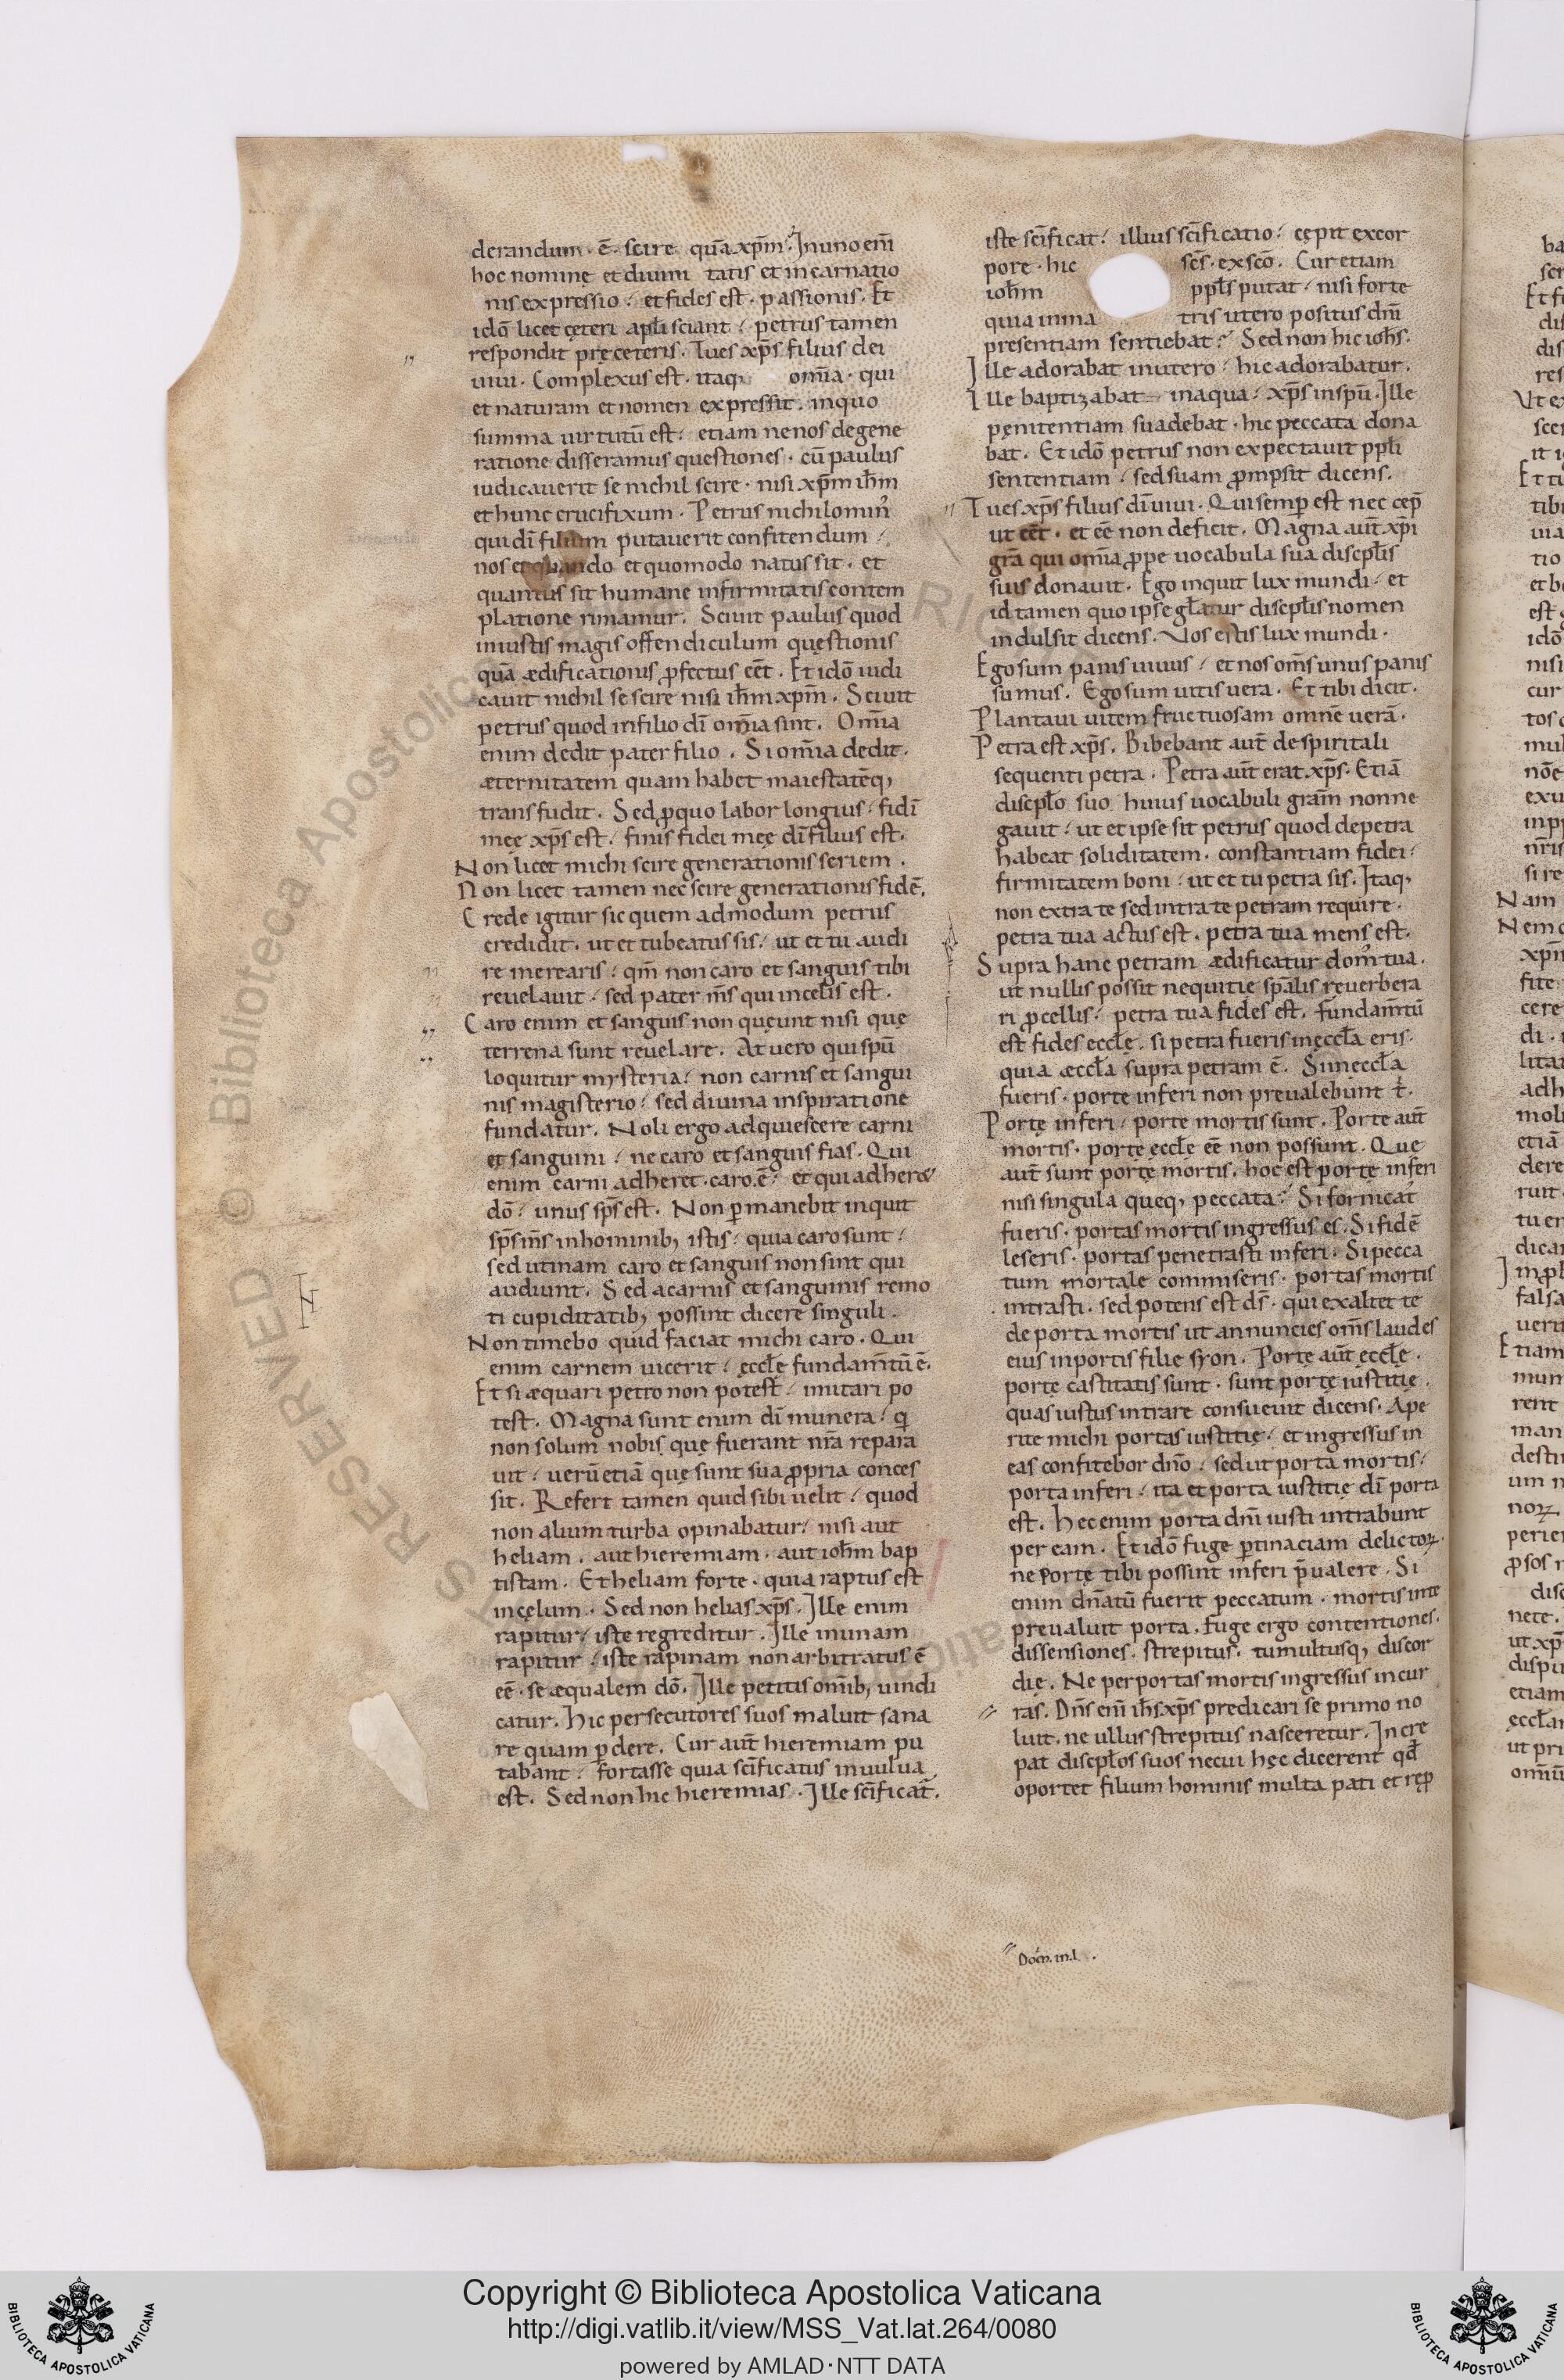 derandum · ē · scire quā xp̄m. In uno eni̅
hoc nomine et diuini tatis et incarnatio
nis expressio / et fides est · passionis. Et
idō licet ceteri apl̄i sciant / petrus tamen
respondit pre ceteris. Tu es xp̄s filius dei
uiui. Complexus est · itaq; om̄ia · qui
et naturam et nomen expressit · in quo
summa uirtutū est / etiam ne nos de gene
ratione disseramus questiones · cū paulus
iudicauerit se nichil scire · nisi xp̄m ih̄m
et hunc crucifixum. Petrus nichilomin᾽
qui dī filium putauerit confitendum /
nos et quando et quomodo natus sit · et
quantus sit humane infirmitatis contem
platione rimamur. Sciuit paulus quod
iniustis magis offendiculum questionis
quā ædificationis ꝓfectus eēt. Et idō iudi
cauit nichil se scire nisi ih̄m xp̄m. Sciuit
petrus quod in filio dī om̄ia sint. Om̄ia
enim dedit pater filio. Si om̄ia dedit.
æternitatem quam habet maiestatēq;
transfudit. Sed ꝓ quo labor longius / fidī
meę xp̄s est / finis fidei meę dī filius est.
Non licet michi scire generationis seriem.
Non licet tamen nec scire generationis fidē.
Crede igitur sic quem admodum petrus
credidit. ut et tu beatus sis / ut et tu audi
re merearis / qm̄ non caro et sanguis tibi
reuelauit / sed pater m̄s qui in cęlis est.
Caro enim et sanguis non queunt nisi quę
terrena sunt reuelare. At uero qui spū
loquitur mysteria / non carnis et sangui
nis magisterio / sed diuina inspiratione
fundatur. Noli ergo adquiescere carni
et sanguini / ne caro et sanguis fias. Qui
enim carni adheret · caro · ē / et qui adheret
dō / unus sp̄s est. Non ꝑmanebit inquit
sp̄s m̄s in hominib; istis / quia caro sunt /
sed utinam caro et sanguis non sint qui
audiunt. Sed a carnis et sanguinis remo
ti cupiditatib; possint dicere singuli.
Non timebo quid faciat michi caro. Qui
enim carnem uicerit / ęccl̄e fundam̄tū ē.
Et si æquari petro non potest / imitari po
test. Magna sunt enim dī munera / q̄
non solum nobis que fuerant nr̄a repara
uit / uerū etiā quę sunt sua ꝓpria conces
sit. Refert tamen quid sibi uelit / quod
non alium turba opinabatur / nisi aut
heliam. aut hieremiam. aut ioh̄m bap
tistam. Et heliam forte · quia raptus est
in cęlum. Sed non helias xp̄s. Ille enim
rapitur / iste regreditur. Ille in unam
rapitur / iste rapinam non arbitratus ē
eē · se æqualem dō. Ille petitis om̄ib; uindi
catur. hic persecutores suos maluit sana
re quam ꝑdere. Cur aut̄ hieremiam pu
tabant / fortasse quia scīficatus in uulua
est. Sed non hic hieremias. Ille scīficat̄.
iste scīficat / illius scīficatio / cępit ex cor
pore · hic sēs · ex scō. Cur etiam
ioh̄m ppl̄s putat / nisi forte
quia in ma tris utero positus dn̄i
presentiam sentiebat / Sed non hic ioh̄s.
Ille adorabat in utero / hic adorabatur.
Ille baptizabat in aqua / xp̄s in spū. Ille
pęnitentiam suadebat · hic peccata dona
bat. Et idō petrus non expectauit ppl̄i
sententiam / sed suam ꝓmpsit dicens.
Tu es xp̄s filius dī uiui. Qui semꝑ est nec cęp̄
ut eēt · et eē non deficit. Magna aut̄ xp̄i
grā qui om̄ia ꝓpe uocabula sua discipl̄is
suis donauit. Ego inquit lux mundi / et
id tamen quo ipse gl̄atur discipl̄is nomen
indulsit dicens. Vos estis lux mundi.
Ego sum panis uiuus / et nos om̄s unus panis
sumus. Ego sum uitis uera. Et tibi dicit.
Plantaui uitem fructuosam omnē uerā.
Petra est xp̄s. Bibebant aut̄ de spiritali
sequenti petra. Petra aut̄ erat xp̄s. Etiā
discipl̄o suo huius uocabuli gram̄ non ne
gauit / ut et ipse sit petrus quod de petra
habeat soliditatem. constantiam fidei /
firmitatem boni / ut et tu petra sis. Itaq;
non extra te sed intra te petram require.
petra tua actus est. petra tua mens est.
Supra hanc petram ædificatur dom᾽ tua.
ut nullis possit nequitię sp̄alis reuerbera
ri ꝓcellis / petra tua fides est. fundam̄tū
est fides eccl̄ę. si petra fueris in ęccl̄a eris.
quia æccl̄a supra petram ē. Si in eccl̄a
fueris. porte inferi non preualebunt t̄.
Portę inferi / porte mortis sunt. Porte aut̄
mortis. portę eccl̄ę eē non possunt. Que
aut̄ sunt portę mortis. hoc est portę inferi
nisi singula queq; peccata / Si fornicat᾽
fueris. portas mortis ingressus es. Si fidē
leseris. portas penetrasti inferi. Si pecca
tum mortale commiseris. portas mortis
intrasti. sed potens est dś · qui exaltet te
de porta mortis ut annuncies om̄s laudes
eius in portis filie syon. Portę aut̄ eccl̄ę.
portę castitatis sunt. sunt portę iustitię.
quas iustus intrare consueuit dicens. Ape
rite michi portas iustitię / et ingressus in
eas confitebor dn̄o / sed ut porta mortis /
porta inferi / ita et porta iustitię dī porta
est. hec enim porta dn̄i iusti intrabunt
per eam. Et idō fuge ꝑtinaciam delictoꝝ.
ne portę tibi possint inferi p̄ualere. Si
enim dn̄atū fuerit peccatum. mortis in te
preualuit porta. fuge ergo contentiones.
dissensiones. strepitus. tumultusq; discor
dię. Ne per portas mortis ingressus incur
ras. Dn̄s eni̅ ih̄s xp̄s predicari se primo no
luit. ne ullus strepitus nasceretur. Incre
pat discipl̄os suos ne cui hęc dicerent qd̄
oportet filium hominis multa pati et reꝓ
Copyright © Biblioteca Apostolica Vaticana
http://digi.vatlib.it/view/MSS_Vat.lat.264/0080
powered by AMLAD·NTT DATA
BIBLIOTECA APOSTOLICA VATICANA
BIBLIOTECA APOSTOLICA VATICANA